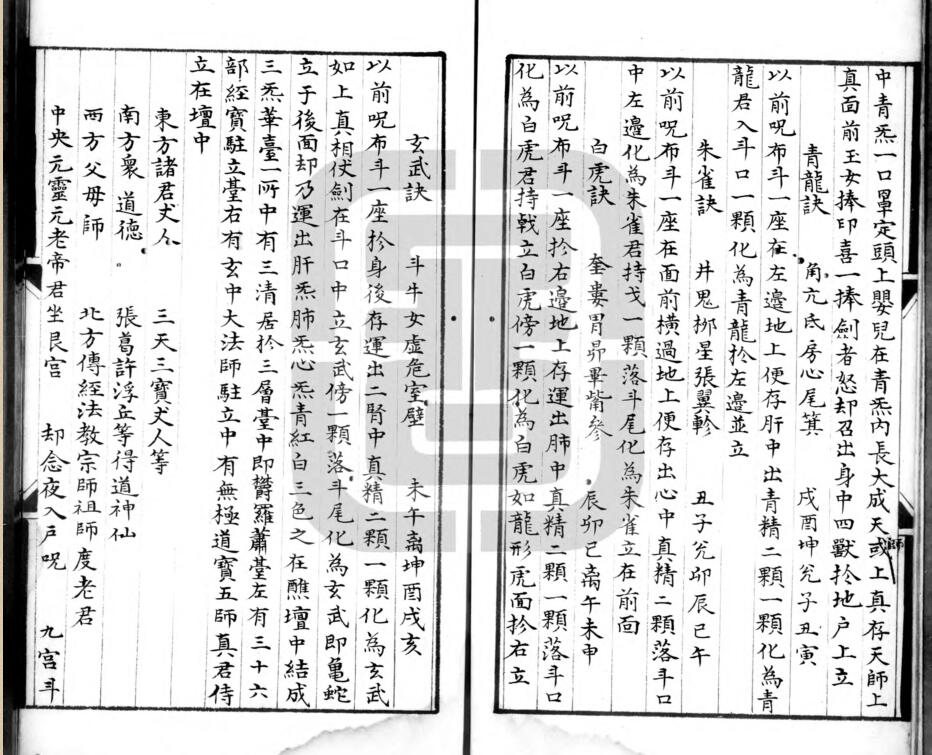 中青炁一口罩定頭上嬰兒在青炁內長大成天或上真存天師上
師
真面前玉女捧印喜一捧劍者怒却召出身中四獸扵地户上立
青龍訣 角亢氐房心尾箕 戌酉坤兊子丑寅
以前呪布斗一座在左邉地上便存肝中出青精二顆一顆化為青
龍君入斗口一顆化為青龍扵左邉並立
朱雀訣 井鬼栁星張翼軫 丑子兊卯辰巳午
以前呪布斗一座在面前橫過地上便存出心中真精二顆落斗口
中左邉化為朱雀君持戈一顆落斗尾化為朱雀立在前面
白虎訣 奎婁胃昴畢觜參 辰卯巳离午未申
以前呪布斗一座扵右邉地上存運出肺中真精二顆一顆落斗口
化為白虎君持戟立白虎傍一顆化為白虎如龍形虎面扵右立
玄武訣 斗牛女虛危室壁 未午离坤酉戌亥
以前呪布斗一座扵身後存運出二腎中真精二顆一顆化為玄武
如上真相仗劍在斗口中立玄武傍一顆落斗尾化為玄武即龜蛇
立于後面却乃運出肝炁肺炁心炁青紅白三色之在醮壇中結成
三炁華臺一所中有三清居扵三層臺中即欝羅蕭臺左有三十六
部經寳駐立臺右有玄中大法師駐立中有無極道寳五師真君侍
立在壇中
東方諸君丈人 三天三寳丈人等
南方衆道德 張葛許浮丘等得道神仙
西方父母師 北方傳經法教宗師祖師度老君
中央元靈元老帝君坐艮宫 却念夜入户呪 九宫斗